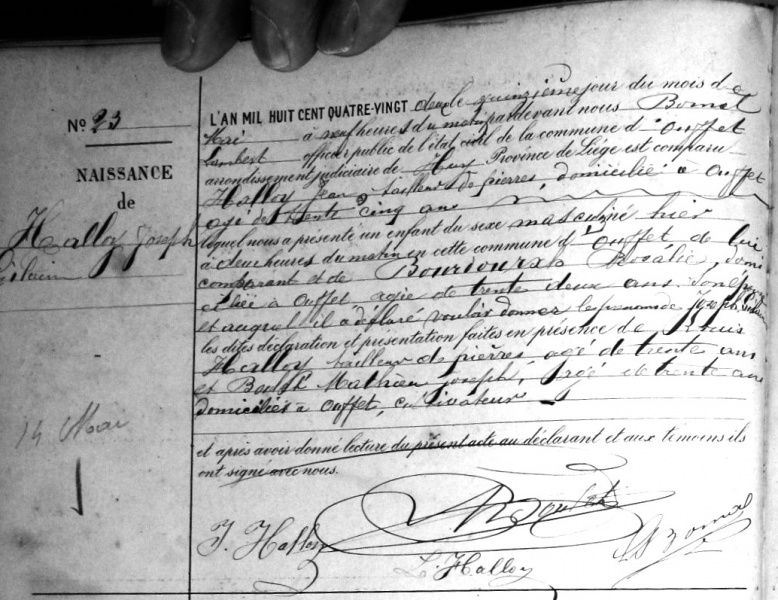 Nº 23
NAISSANCE
de
Halloy Joseph
Ghilain
14 Mai
L'AN MIL HUIT CENT QUATRE-VINGT deux le quinzième jour du mois de
Mai à neuf heures du matin pardevant nous
Lambert officier public de l'état civil de la commune d'Ouffet
arrondissement judiciaire de Huy Province de Liège est comparu
Halloy Jean, tailleur de pierres, domicilié à Ouffet
agé de trente cinq ans
lequel nous a présenté un enfant du sexe masculin né hier
à deux heures du matin en cette commune d'Ouffet de lui
comparant et de Rosalie, domi
ciliée à Ouffet, agée de trente deux ans, son épouse
et auquel il a déclaré vouloir donner les prénoms de Joseph Ghilain
les dites déclaration et présentation faites en présence de Louis
Halloy tailleur de pierres, agé de trente ans
et Mathieu Joseph, agé de trente ans
domiciliés à Ouffet, cultivateur
et après avoir donné lecture du présent acte au déclarant et aux témoins ils
ont signé avec nous.
J. Halloy
L. Halloy